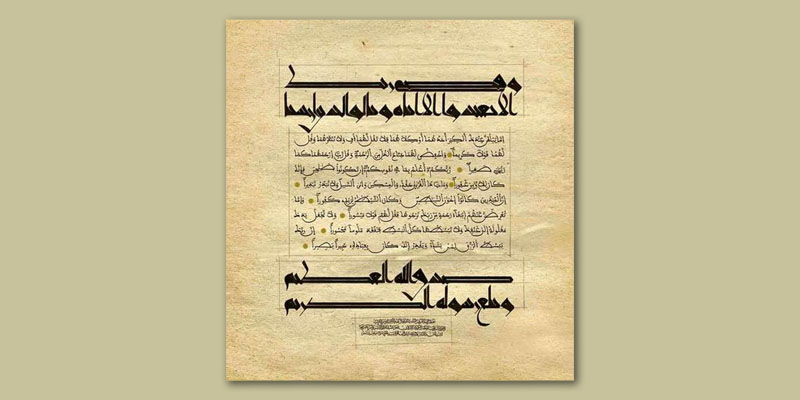 وقضى ربك
ألا تعبدوا إلا إياه وبالوالدين إحسانا
إما يبلغن عندك الكبر أحدهما أو كلاهما فلا تقل لهما أف ولا تنهرهما وقل
لهما قولا كريما واخفض لهما جناح الذل من الرحمة وقل رب ارحمهما كما
ربياني صغيرا ربكم أعلم بما في نفوسكم إن تكونوا صالحين فإنه
كان للأوابين غفورا وآت ذا القربى حقه والمسكين وابن السبيل ولا تبذر تبذيرا
إن المبذرين كانوا إخوان الشياطين وكان الشيطان لربه كفورا وإما
تعرضن عنهم ابتغاء رحمة من ربك ترجوها فقل لهم قولا ميسورا ولا تجعل يدك
مغلولة إلى عنقك ولا تبسطها كل البسط فتقعد ملوما محسورا إن ربك
يبسط الرزق لمن يشاء ويقدر إنه كان بعباده خبيرا بصيرا
صدق الله العظيم
وبلغ رسوله الكريم